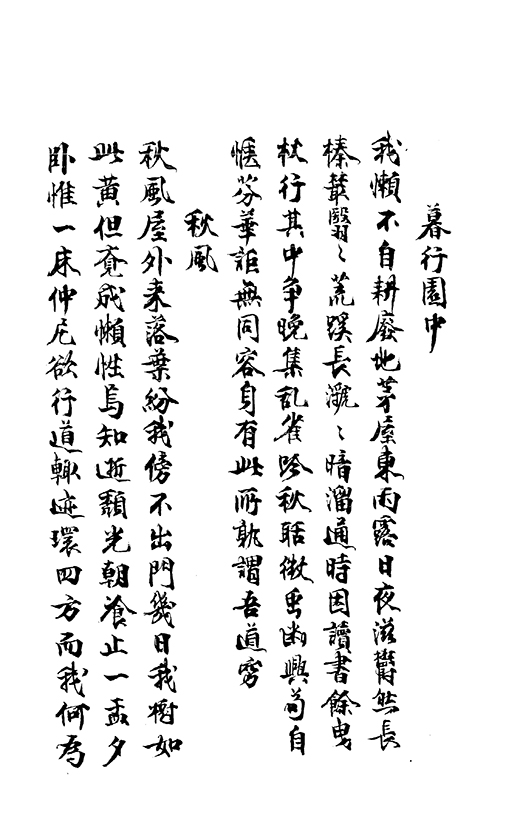 暮行園中
我懶不自耕廢地茅屋東雨露日夜滋欝然長
榛藂翳〻荒蹊長㶁〻暗溜通時因讀書餘曳
杖行其中爭晚集乱雀吟秋聒微虫幽興茍自
愜芬華詎無同容身有此所孰謂吾道窮
秋風
秋風屋外来落葉紛我傍不出門幾日我樹如
此黄但竟成懶性烏知逝頹光朝飡止一盂夕
卧惟一床仲尼欲行道轍迹環四方而我何為